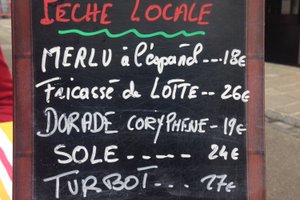 PÊCHE LOCALE
MERLU à l'épard --- 18€
Fricassé de LOTTE -- 26€
DORADE CORYPHENE - 19€
SOLE ----- 24€
TURBOT --- 27€